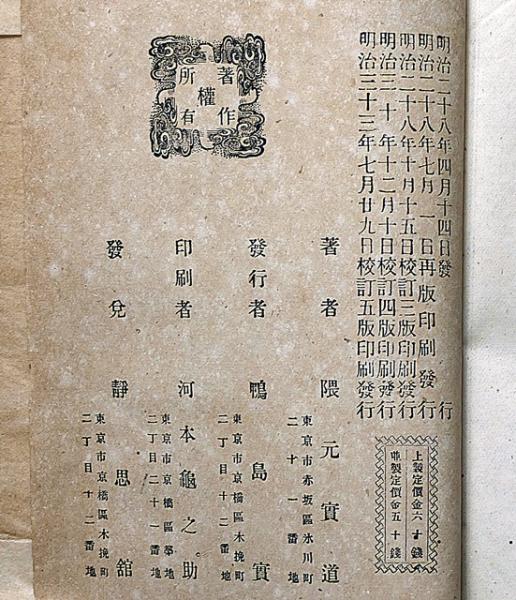 明治二十八年四月十四日發行
明治二十八年七月一日再版印刷發行
明治二十八年十月十五日校訂三版印刷發行
明治三十年十二月十日校訂四版印刷發行
明治三十三年七月廿九日校訂五版印刷發行
上製定價金六十錢
並製定價金五十錢
著作權所有
著者 隈元實道
東京市赤坂區氷川町
二十一番地
發行者 鴨島實
東京市京橋區木挽町
二丁目十二番地
印刷者 河本龜之助
東京市京橋區築地
二丁目二十一番地
發兌 靜思舘
東京市京橋區木挽町
二丁目十二番地